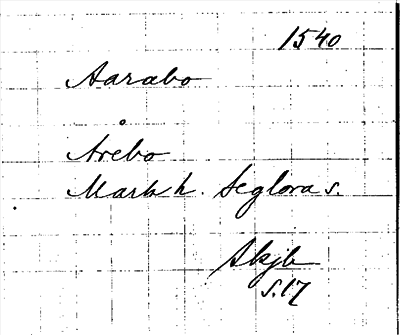 1540
Aarabo
Årebo
Marks h. Seglora s.
Skjb
s. 17